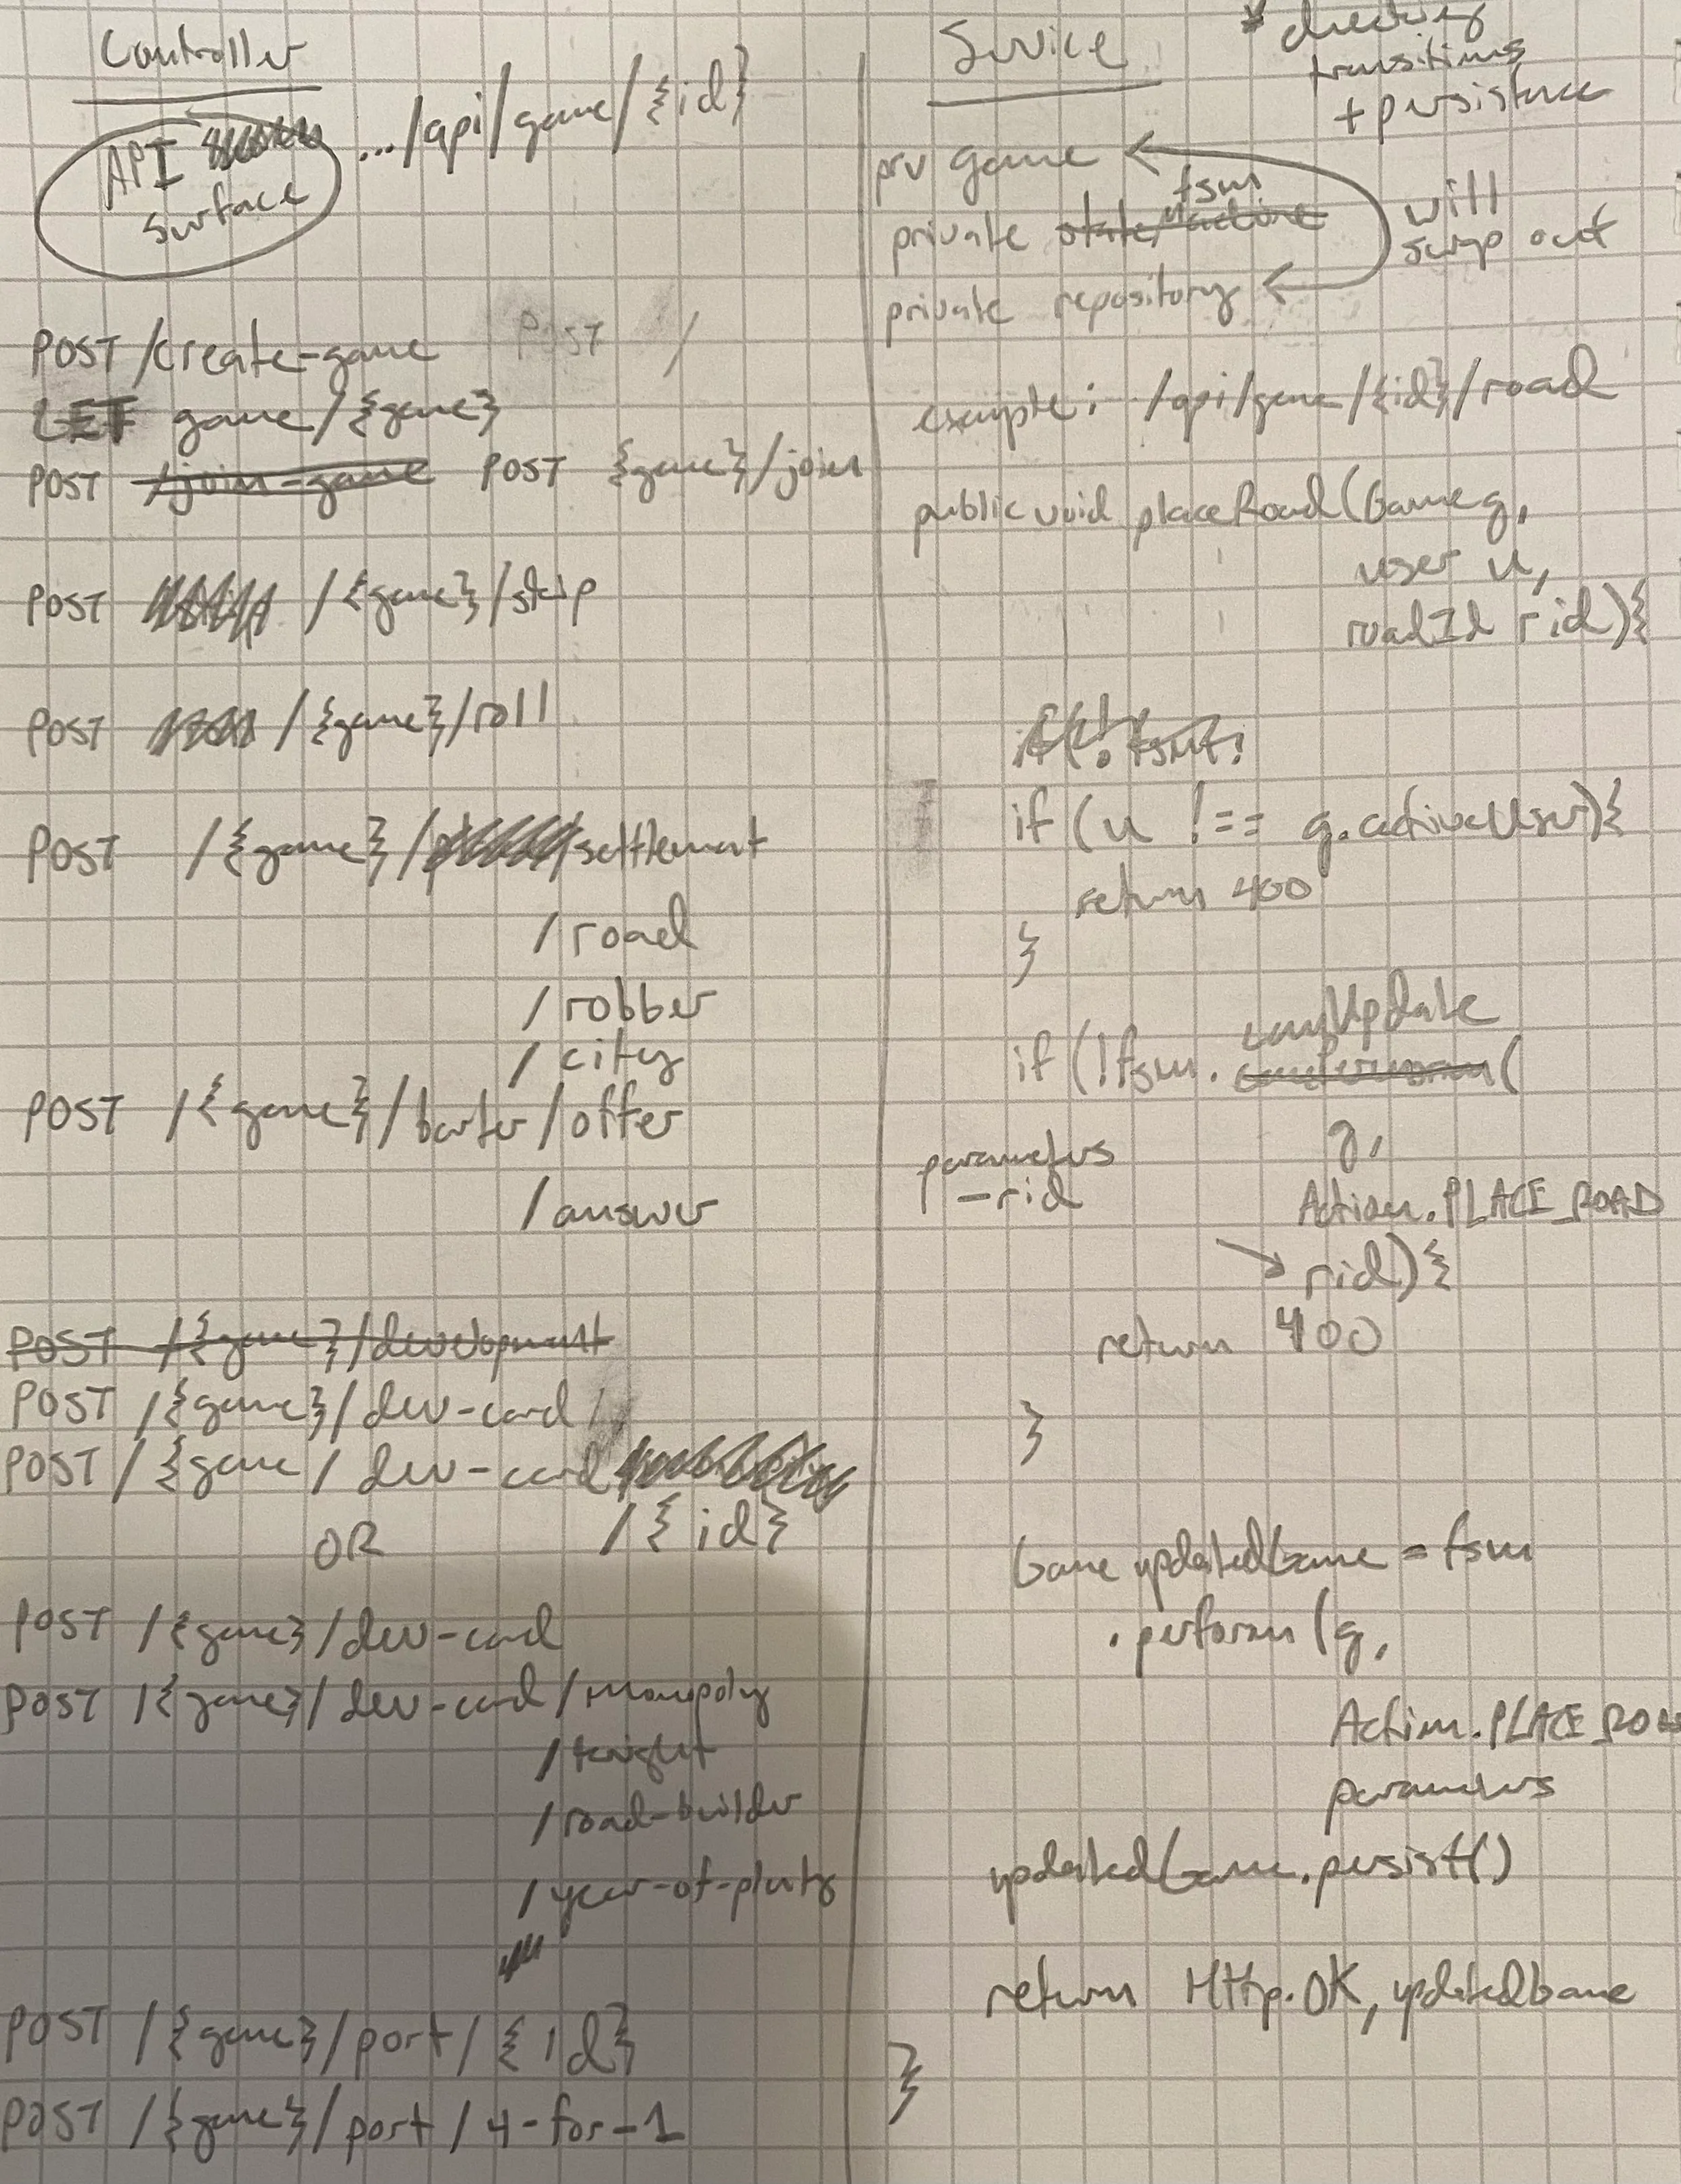 Controller
API
Surface
.../api/game/{id}
POST /create-game POST /
GET game/{game}
POST /join-game POST {game}/join
POST /{game}/skip
POST /{game}/roll
POST /{game}/settlement
/road
/robber
/city
POST /{game}/barter/offer
/answer
POST /{game}/development
POST /{game}/dev-card/
POST /{game/dev-card
/{id}
OR
POST /{game}/dev-card
POST /{game}/dev-card/monopoly
/knight
/road-builder
/year-of-plenty
POST /{game}/port/{id}
POST /{game}/port/4-for-1
Service
* checking
transitions
+ persistence
prv game
fsm
private stateMachine
private repository
will
swap out
example: /api/game/{id}/road
public void placeRoad(Game g,
user u,
roadId rid){
if(!fsm.
if (u !== g.activeUser){
return 400
}
canUpdate
if (!fsm. canPerform(
g,
parameters
-rid
Action.PLACE_ROAD
rid){
return 400
}
Game updatedGame = fsm
.perform(g,
Action.PLACE_ROA
parameters
updatedGame.persist()
return Http.OK, updatedGame
}